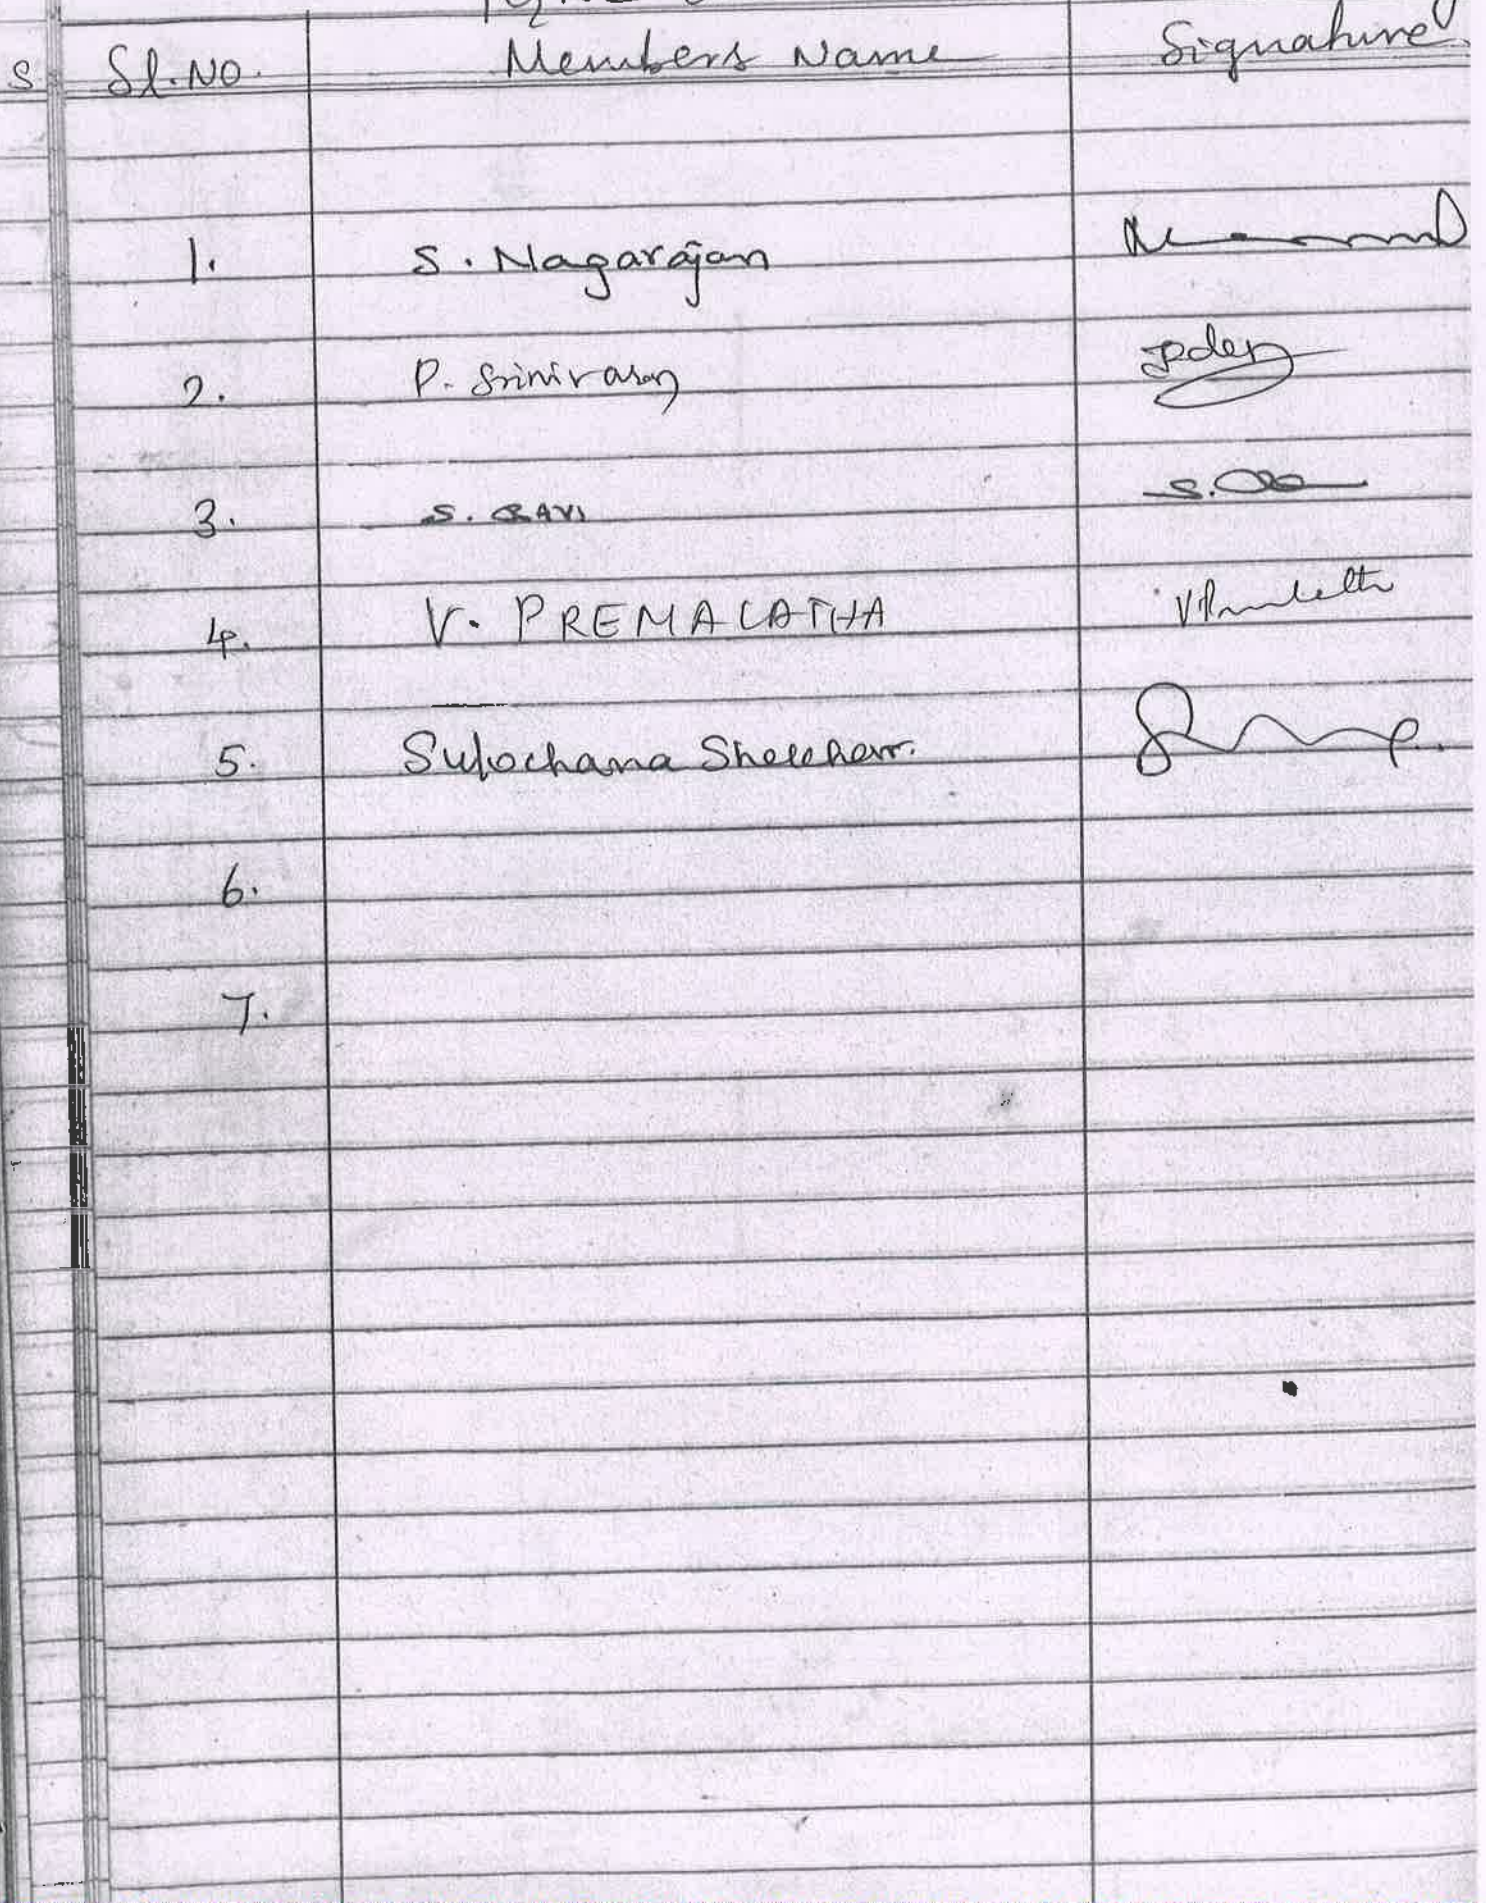 S
Sl.No. Members Name Signature
1. S. Nagarajan
2. P. Srinivasan
3. S. RAVI S.
4. V. PREMALATHA
5. Sulochana Shekhar.
6.
7.